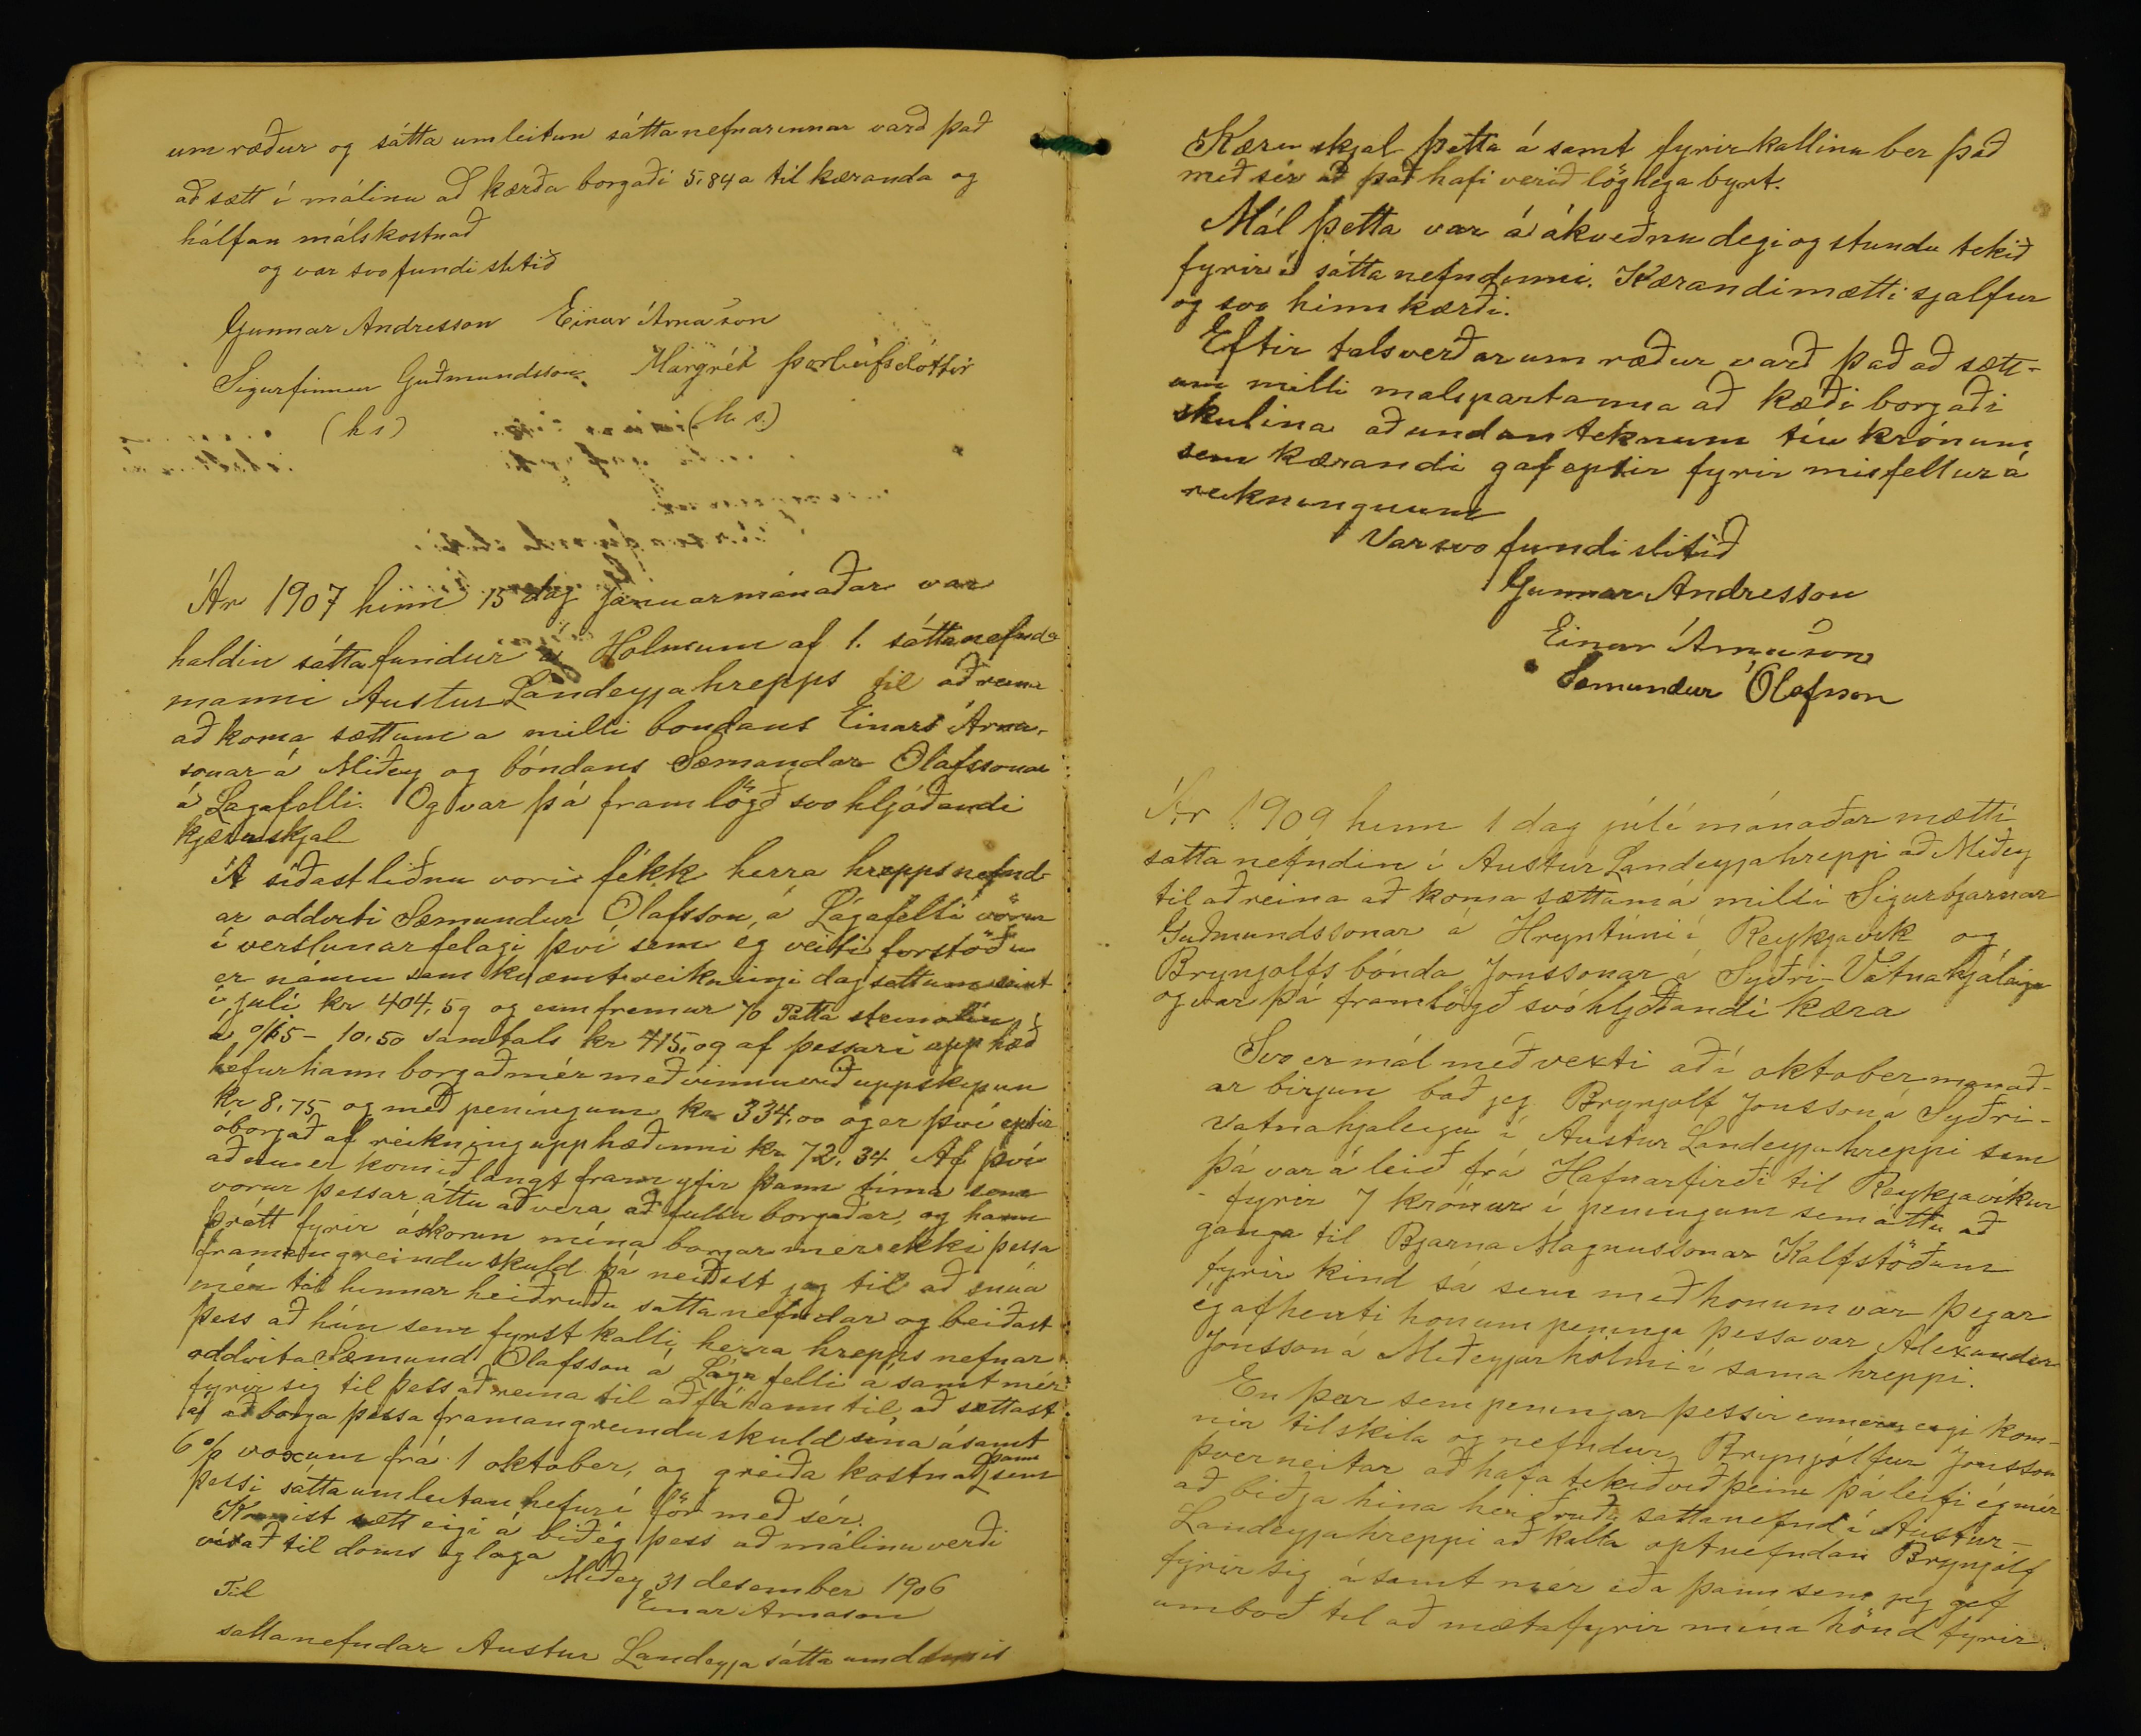 um ræður og sátta umleitun sáttanefnarinnar varð það
að sætt í málinu að kærða borgaði 5,84 a til kæranda og
hálfan málskostnað
og var svo fundi slitið
Gunnar Andresson Einar Árnason
Sigurfinnur Guðmundsson Margrét Þorleifsdóttir
(h s) (h s.)
Ár 1907 hinn 15 dag Janúarmánaðar var
haldin sáttafundur á Holmum af 1. sáttanefnda
manni Austur Landeyjahrepps til að reina
að koma sættum a milli bondans Einars Árna-
sonar á Miðey og bóndans Sæmundar Olafssonar
á Lagafelli. Og var þá framlögð svo hljóðandi
kjæruskjal
Á síðastliðnu vori fékk herra hreppsnefnd-
ar oddviti Sæmundur Olafsson á Lágafelli vörur
í verslunarfelagi því sem ég veiti forstöðu
er námu samkvæmt reikningi dagsettum seint
í júlí kr 404,59 og ennfremur 70 Potta steinolíu
á 0/15 - 10,50 samtals kr 415,09 af þessari upphæð
hefur hann borgað mér með vinnu við uppskipun
kr 8,75 og með peningum kr 334,00 og er því eptir
óborgað af reikningupphæðinni kr 72,34 Af því
að nu er komið langt fram yfir þann tíma sem
vörur þessar áttu að vera að fullu borgaðar, og hann
þrátt fyrir áskorun mína borgar mér ekki þessa
framangreindu skuld þá neiðist jeg til að snúa
mér til hinnar heiðruðu sattanefndar og beiðast
þess að hún sem fyrst kalli herra hrepps nefnar
oddvita Sæmund Olafsson á Lága felli á samt mér
fyrir sig til þess að reina til að fá hann til að sættast
á að borga þessa framangreindu skuld sína ásamt
6 % voxum frá 1 oktober, og greiða kostnað þann sem
þessi sátta umleitan hefur í för með sér.
Komist sætt eigi á bið ég þess að málinu verði
vísað til doms og laga
Miðey 31 desember 1906
Einar Arnason
Til
sattanefndar Austur Landeyja sátta umdæmis
Kæru skjal þetta á samt fyrirkallinu ber það
með sér að það hafi verið löglega byrt.
Mál þetta var á ákveðnu degi og stundu tekið
fyrir í sátta nefndinni. Kærandi mætti sjalfur
og svo hinn kærði.
Eftir talsverðar um ræður varð það að sætt-
um milli malspartanna að kæði borgaði
skulina að undan teknum tíu krónum
sem kærandi gaf eptir fyrir misfellur á
reikningnum
Var svo fundi slitið
Gunnar Andresson
Einar Árnason
Sæmundur Ólafsson
Ár 1909 hinn 1 dag júlí mánaðar mætti
satta nefndin í Austur Landeyjahreppi að Miðey
til að reina að koma sættum á milli Sigurbjarnar
Guðmundssonar á Hryntúni í Reykjavík og
Brynjolfs bónda Jonssonar á Syðri-Vatnahjáleigu
og var þá framlögð svó hljóðandi kæra
Svo er mál með vexti að í oktober manað-
ar birjun bað jeg Brynjolf Jonsson á Syðri-
Vatnahjaleigu í Austur Landeyjahreppi sem
þá var á leið frá Hafnarfirði til Reykjavíkur
fyrir 7 krónur í peningum sem áttu að
ganga til Bjarna Magnussonar Kalfstöðum
fyrir kind sá sem með honum var þegar
ég afhenti honum peninga þessa var Alexander
Jonsson á Miðeyjarholmi í sama hreppi.
En þar sem peningar þessir enn eru eigi kom-
nir til skila og nefndur Brynjólfur Jonsson
þverneitar að hafa tekið við þeim þá leifi ég mér
að biðja hina heiðruðu sattanefnd í Austur-
Landeyjahreppi að kalla optnefndan Brynjólf
fyrir sig á samt mér eða þann sem jeg gef
umboð til að mæta fyrir mína hönd fyrir